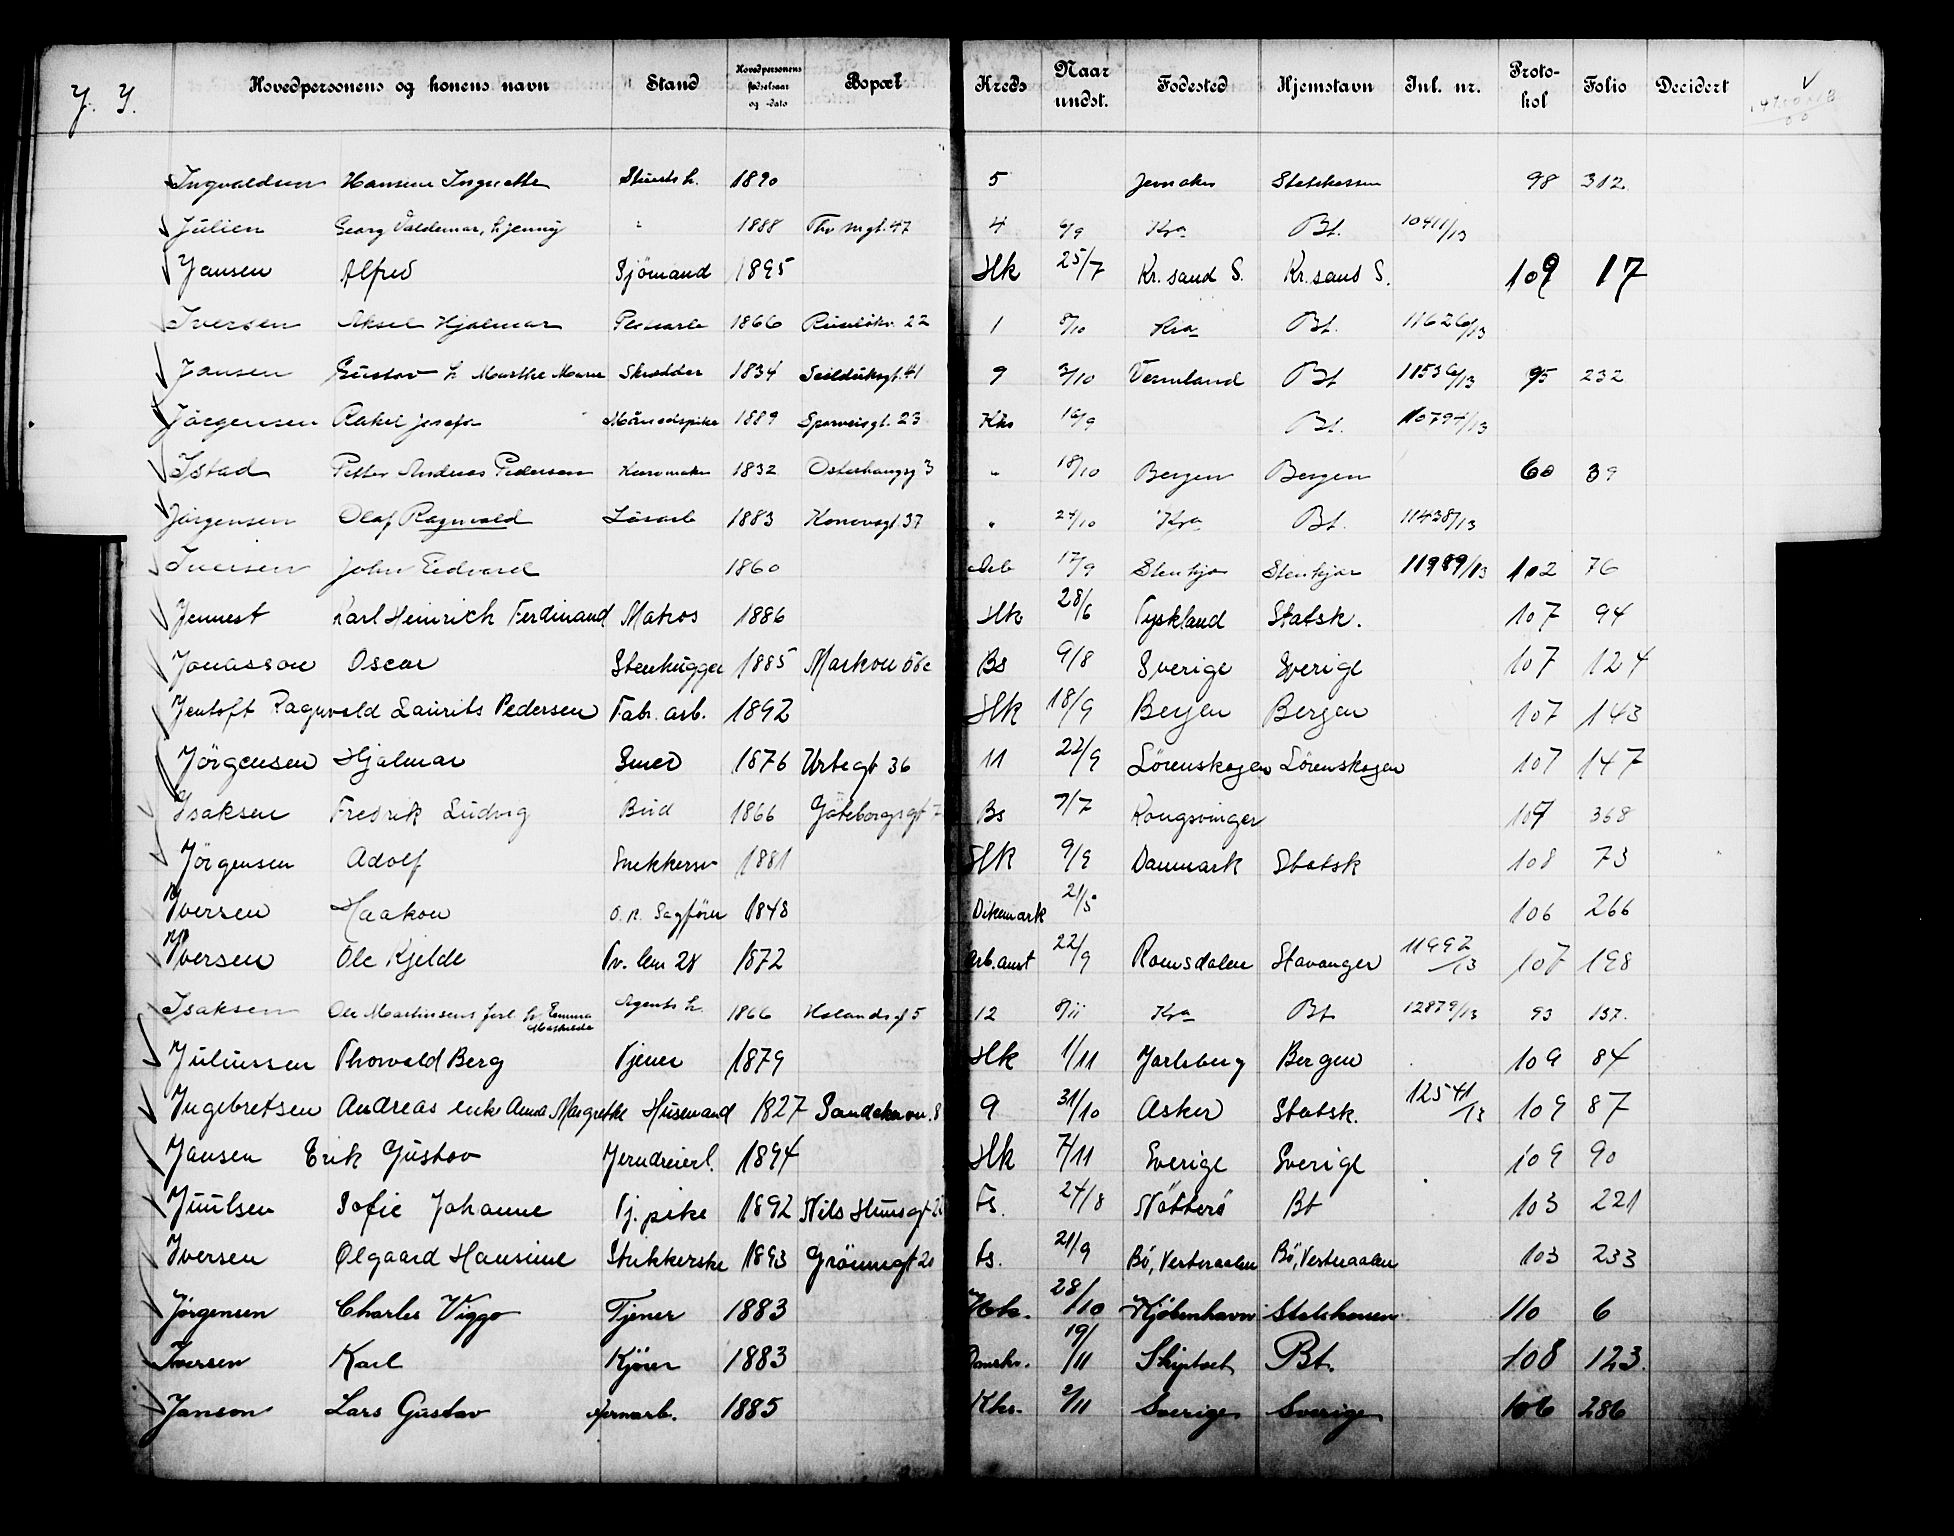 J. I.
Hovedpersonens og konens navn Stand Hovedpersonens fødselsaar og -dato Bopæl Kreds Naar undst. Fødested Hjemstavn Inl. nr. Protokol Folio Decidert
Ingvaldsen 1890 5 Jevnaker Statskassen 98 312
Julien Georg Valdemar, h Jenny " 1888 Thv Mgt. 47 4 6/9 Kra Bt. 10411/13
Jensen Alfred Sjömand 1895 Hk 25/7 Kr. sand S. Kr. sand S. 109 17
Iversen Aksel Hjalmar 1866 22 1 8/10 Kra Bt. 11626/13
Jansen Gustav h Marthe Marie Skrædder 1834 Seilduksgt. 41 9 3/10 Vermland Bt 11536/13 95 232
Jörgensen Rakel Josefa 1889 Sporveisgt. 23 Khs 16/9 Bt. 10794/13
Istad Petter Andreas Pedersen 1832 3 " 18/10 Bergen Bergen 60 39
Jörgensen Olaf Ragnvald Lösarb 1883 37 " 24/10 Kra Bt. 11438/13
Iversen John Edvard 1860 Arb 17/9 Stenkjær Stenkjær 11989/13 102 76
Jennest Karl Heinrich Ferdinand Matros 1886 Hk 28/6 Tyskland Statsk. 107 94
Jonasson Oscar Stenhugger 1885 Markvn 56c Bs 9/8 Sverige Sverige 107 124
Jentoft Ragnvald Laurits Pedersen Fabr. arb. 1892 Hk 18/9 Bergen Bergen 107 143
Jörgensen Hjalmar Smed 1876 Urtegt 36 11 22/9 Lörenskogen Lörenskogen 107 147
Isaksen Fredrik Ludvig Bud 1866 Göteborggt 7 Bs 7/7 Kongsvinger 107 368
Jörgensen Adolf Snekkersv 1881 Hk 9/9 Danmark Statsk 108 73
Iversen Haakon O. R. Sagförer 1848 Dikemark 21/5 106 266
Iversen Ole Kjelde Pv. lem 28 1872 Arb. anst 22/9 Romsdalen Stavanger 11992/13 107 198
Isaksen Ole Martinsens forl. h. Emma Mathilde Agents h. 1866 5 12 8/11 Kra Bt 12879/13 93 137.
Juliussen Thorvald Berg Tjener 1879 Hk 1/11 Jarlsberg Bergen 109 84
Ingebretsen Andreas enke Anna Margrethe Husmand 1827 Sandakervn. 8 9 31/10 Asker Statsk. 12541/13 109 87
Jansen Erik Gustav Jerndreierl. 1894 Hk 7/11 Sverige Sverige 109 90
Juulsen Sofie Johanne Tj. pike 1892 Nils Huusgt 22 Fs. 24/8 Nötterö Bt 103 221
Iversen Olgaard Hansine Strikkerske 1893 Grönnegt 20 Fs. 21/9 Bö, Vesteraalen Bö, Vesteraalen 103 233
Jörgensen Charles Viggo Tjener 1883 Hk. 28/10 Kjöbenhavn Statskassen 110 6
Iversen Karl Kjörer 1883 19/11 Skiptvet Bt. 108 123.
Janson Lars Gustav Jernarb. 1885 Khs. 2/11 Sverige Sverige 106 286